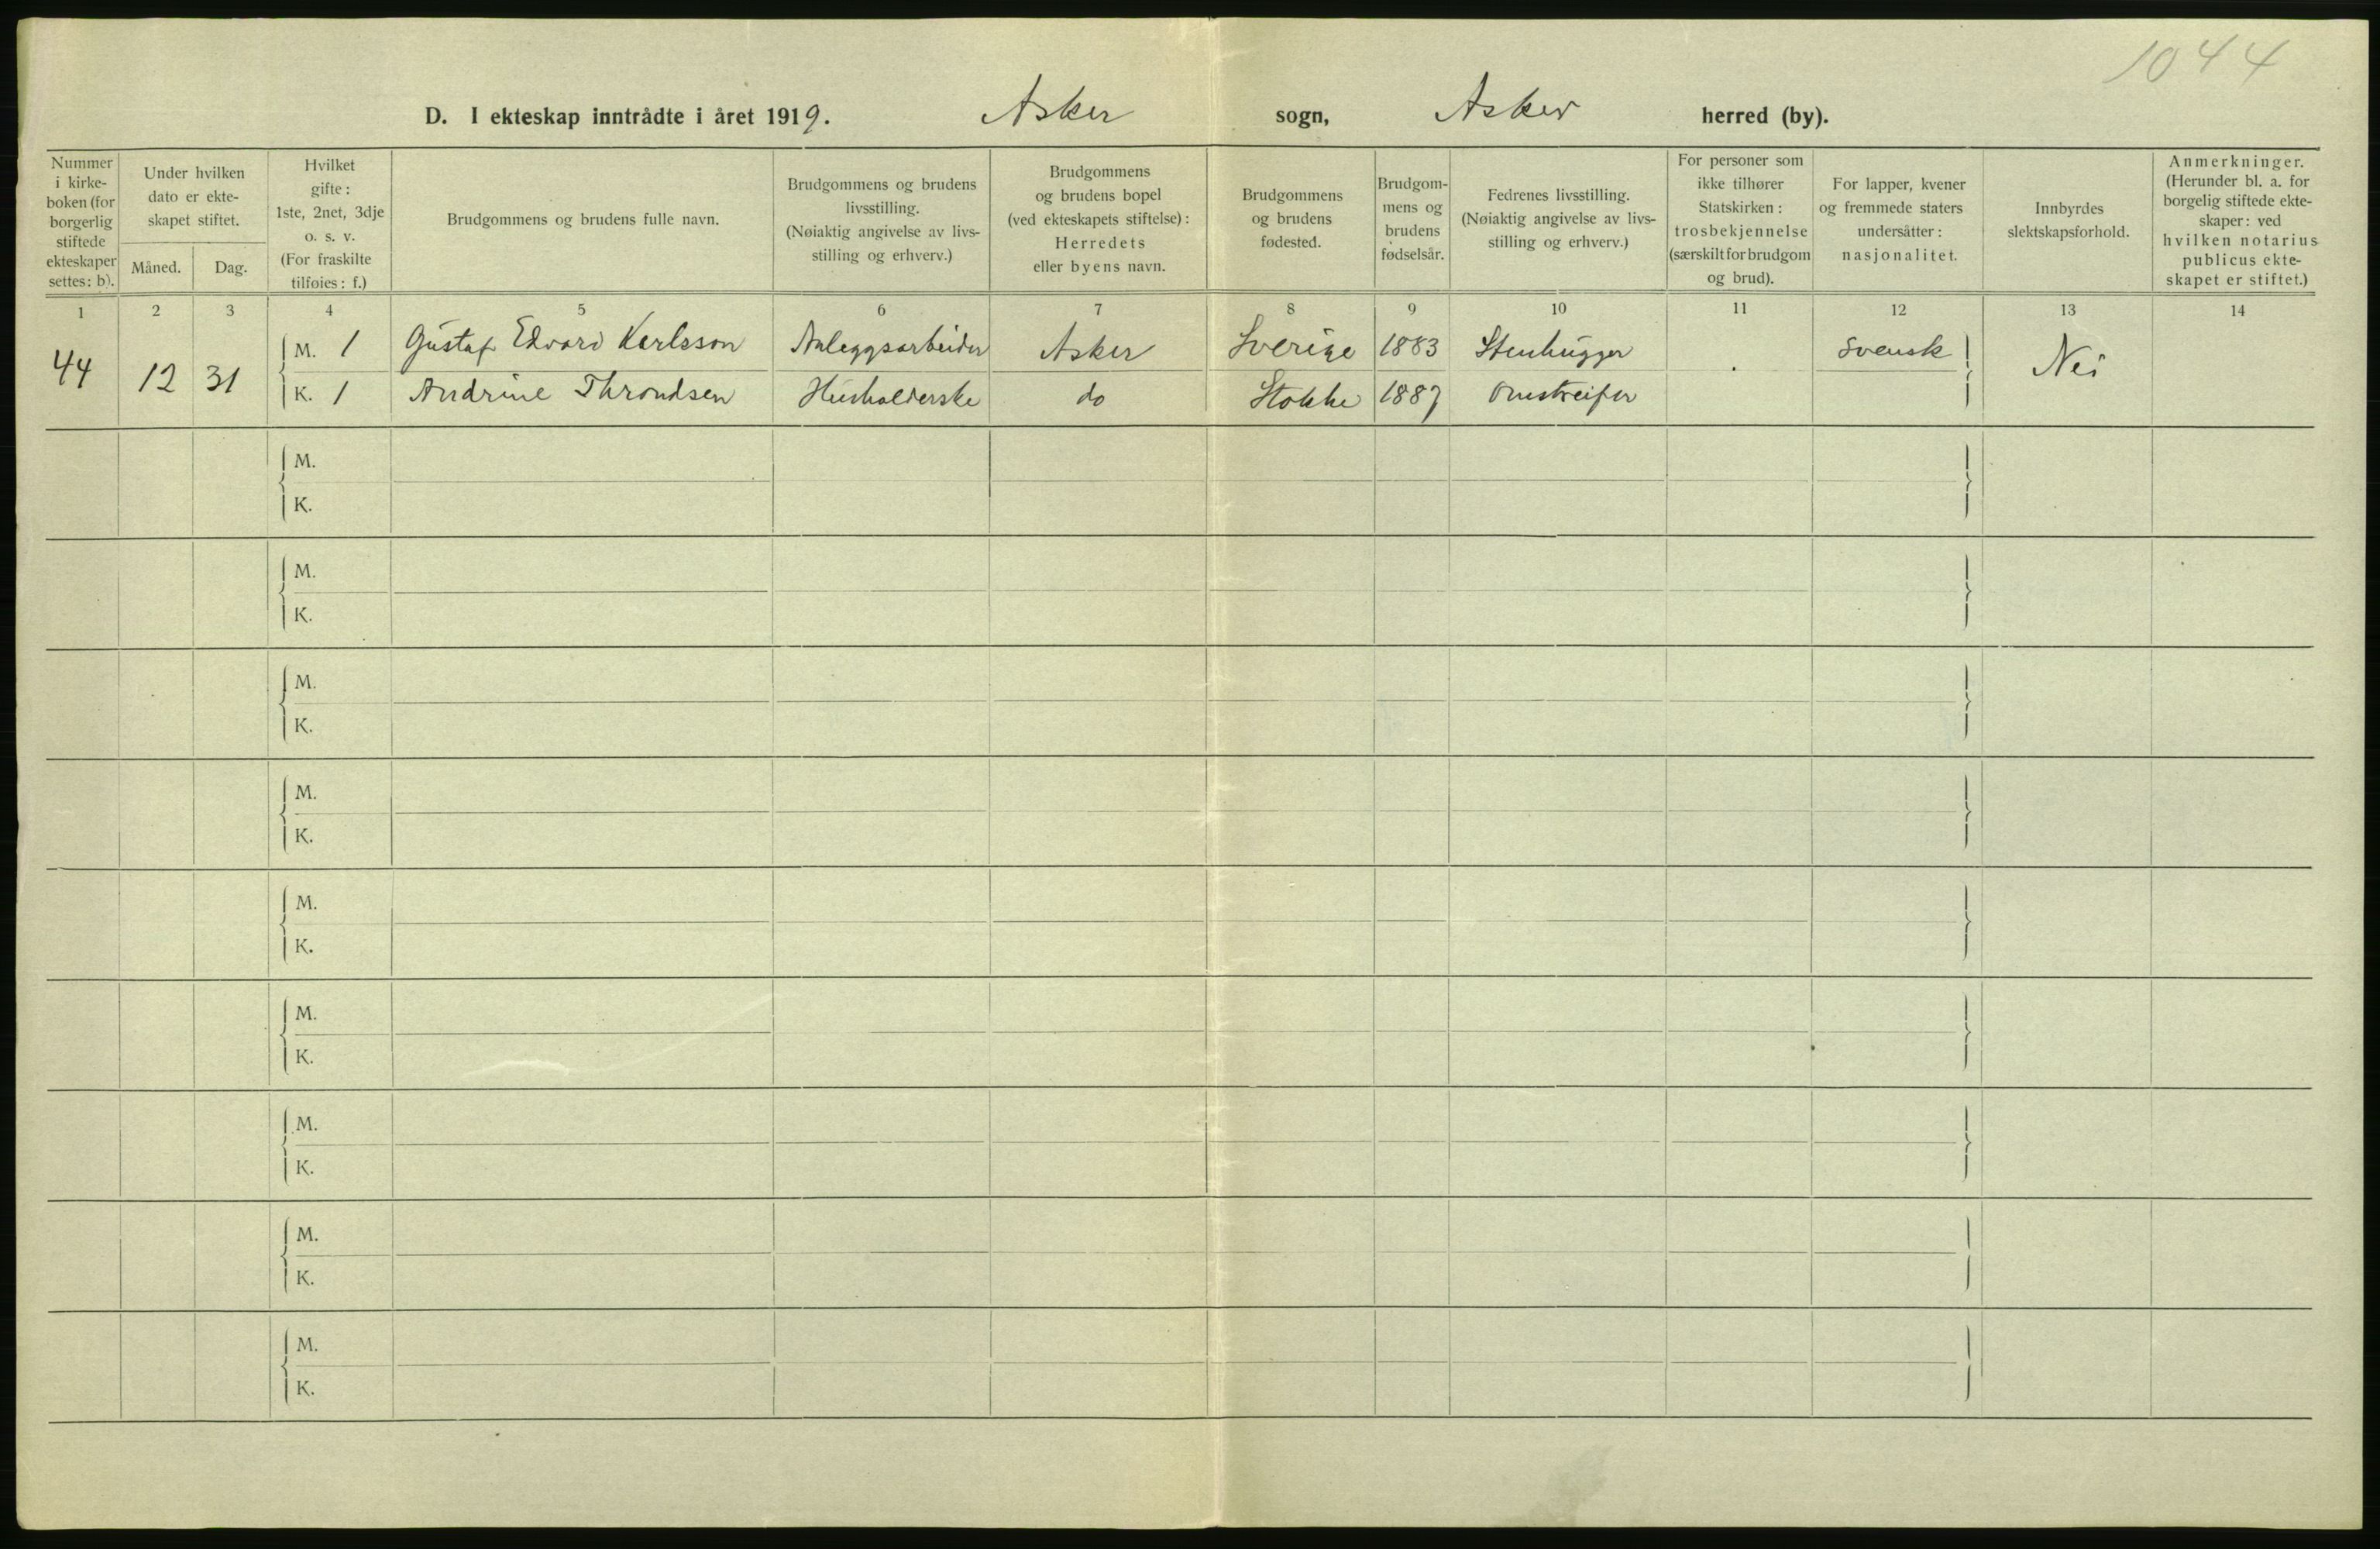 1044
D. I ekteskap inntrådte i året 1919. Asker sogn, Asker herred (by).
Nummer
i kirke-
boken (for
borgerlig
stiftede
ekteskaper
settes: b).
Under hvilken
dato er ekte-
skapet stiftet.
Måned. Dag.
Hvilket
gifte:
1ste, 2net, 3dje
o. s. v.
(For fraskilte
tilføies: f.)
Brudgommens og brudens fulle navn.
Brudgommens og brudens
livsstilling.
(Nøiaktig angivelse av livs-
stilling og erhverv.)
Brudgommens
og brudens bopel
(ved ekteskapets stiftelse):
Herredets
eller byens navn.
Brudgommens
og brudens
fødested.
Brudgom-
mens og
brudens
fødselsår.
Fedrenes livsstilling.
(Nøiaktig angivelse av livs-
stilling og erhverv.)
For personer som
ikke tilhører
Statskirken:
trosbekjennelse
(særskilt for brudgom
og brud).
For lapper, kvener
og fremmede staters
undersåtter:
nasjonalitet.
Innbyrdes
slektskapsforhold.
Anmerkninger.
(Herunder bl. a. for
borgelig stiftede ekte-
skaper: ved
hvilken notarius
publicus ekte-
skapet er stiftet.)
1 2 3 4 5 6 7 8 9 10 11 12 13 14
44 12 31 M. 1 Gustaf Edvard Karlsson Anleggsarbeider Asker Sverige 1883 Stenhugger svensk Nei
K. 1 Andrine Throndsen Husholderske do Stokke 1887 Omstreifer
M.
K.
M.
K.
M.
K.
M.
K.
M.
K.
M.
K.
M.
K.
M.
K.
M.
K.